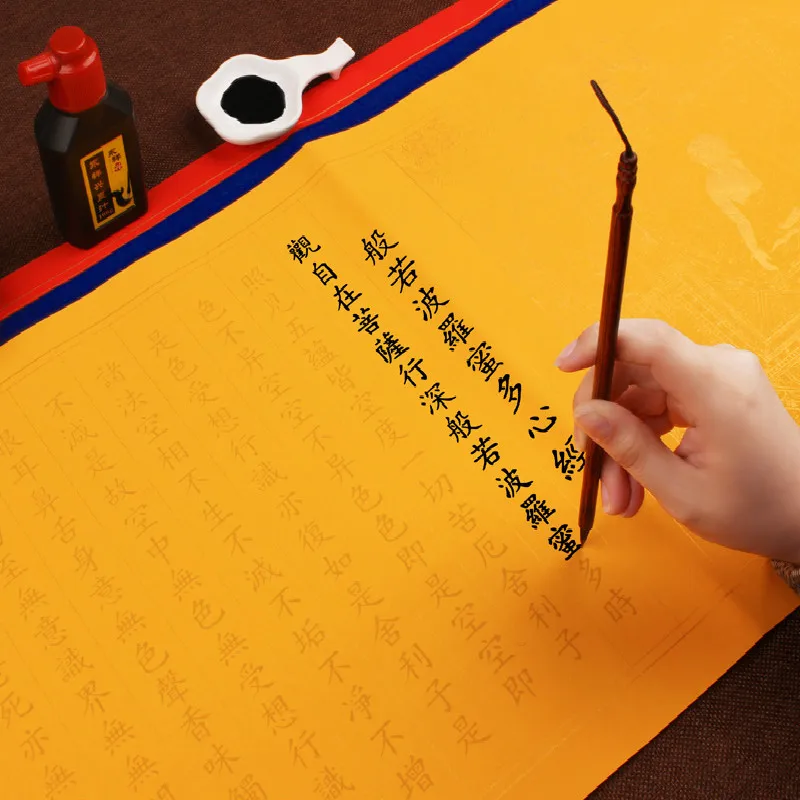 般若波羅蜜多心經
觀自在菩薩行深般若波羅蜜多時
照見五蘊皆空度一切苦厄舍利子
色不異空空不異色色即是空空即
是色受想行識亦復如是舍利子是
諸法空相不生不滅不垢不淨不增
不減是故空中無色無受想行識
眼耳鼻舌身意無色聲香味觸
至無意識界無無明
死亦無